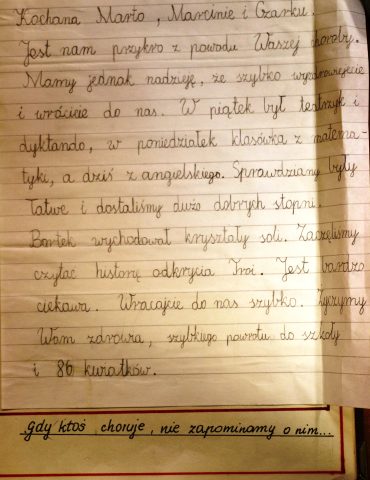 Kochana Marto, Marcinie i Czarku.
Jest nam przykro z powodu Waszej choroby.
Mamy jednak nadzieję, że szybko wyzdrowiejecie
i wrócicie do nas. W piątek był teatrzyk i
dyktando, w poniedziałek klasówka z matema-
tyki, a dziś z angielskiego. Sprawdziany były
łatwe i dostaliśmy dużo dobrych stopni.
Bartek wychodował kryształy soli. Zaczęliśmy
czytać historię odkrycia Troi. Jest bardzo
ciekawa. Wracajcie do nas szybko. Życzymy
Wam zdrowia, szybkiego powrotu do szkoły
i 86 kwiatków.
Gdy ktoś choruje, nie zapominamy o nim...